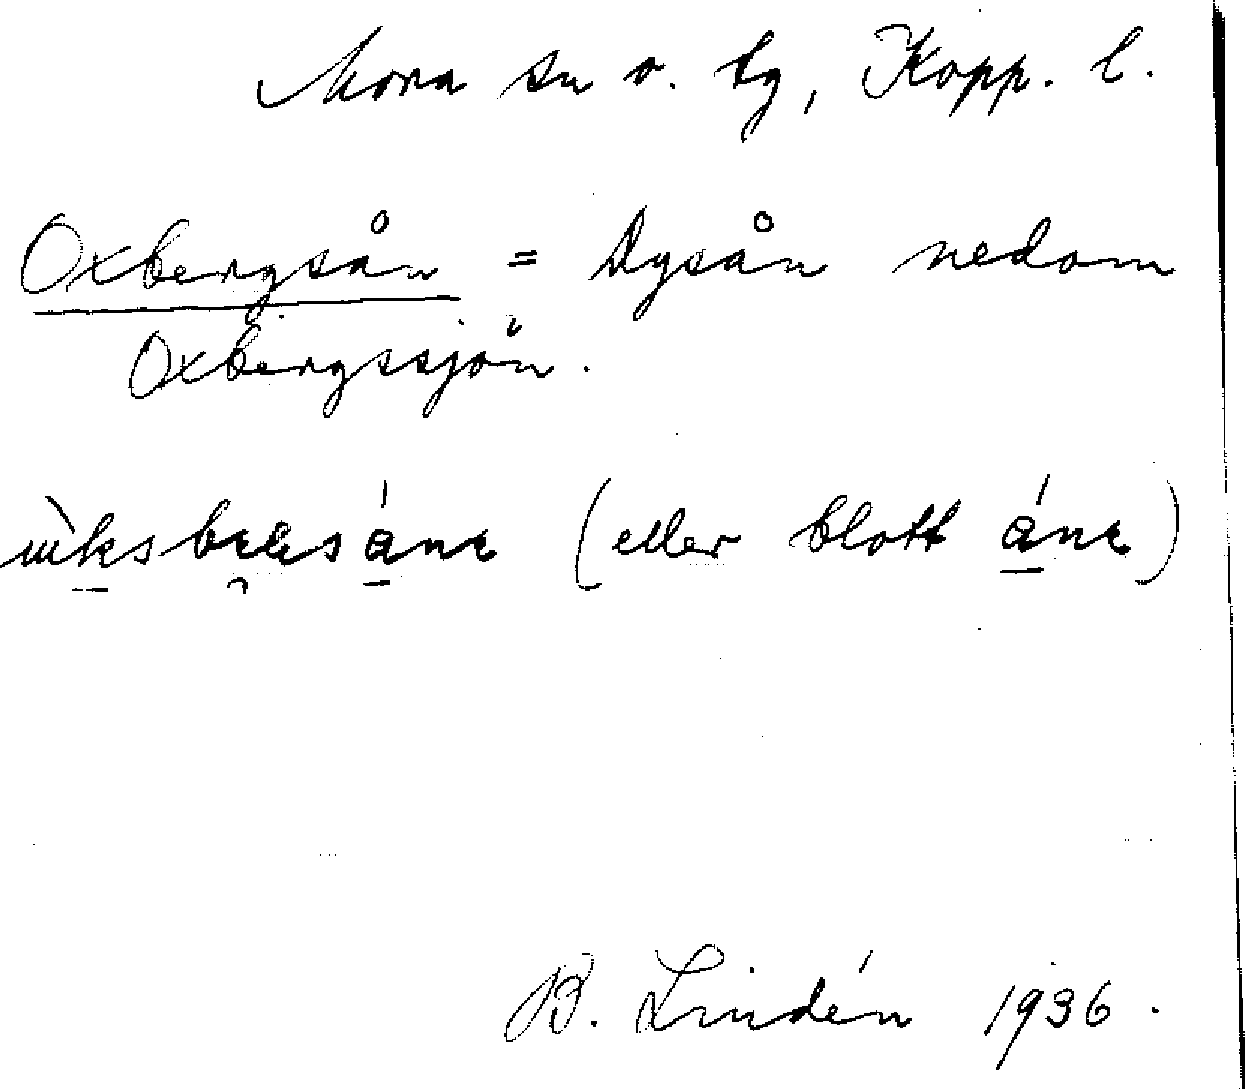 Mora sn o. tg, Kopp. l.
Oxbergsån = Dysån nedom
Oxbergssjön.
(eller blott ánɛ)
B. Lindén 1936.